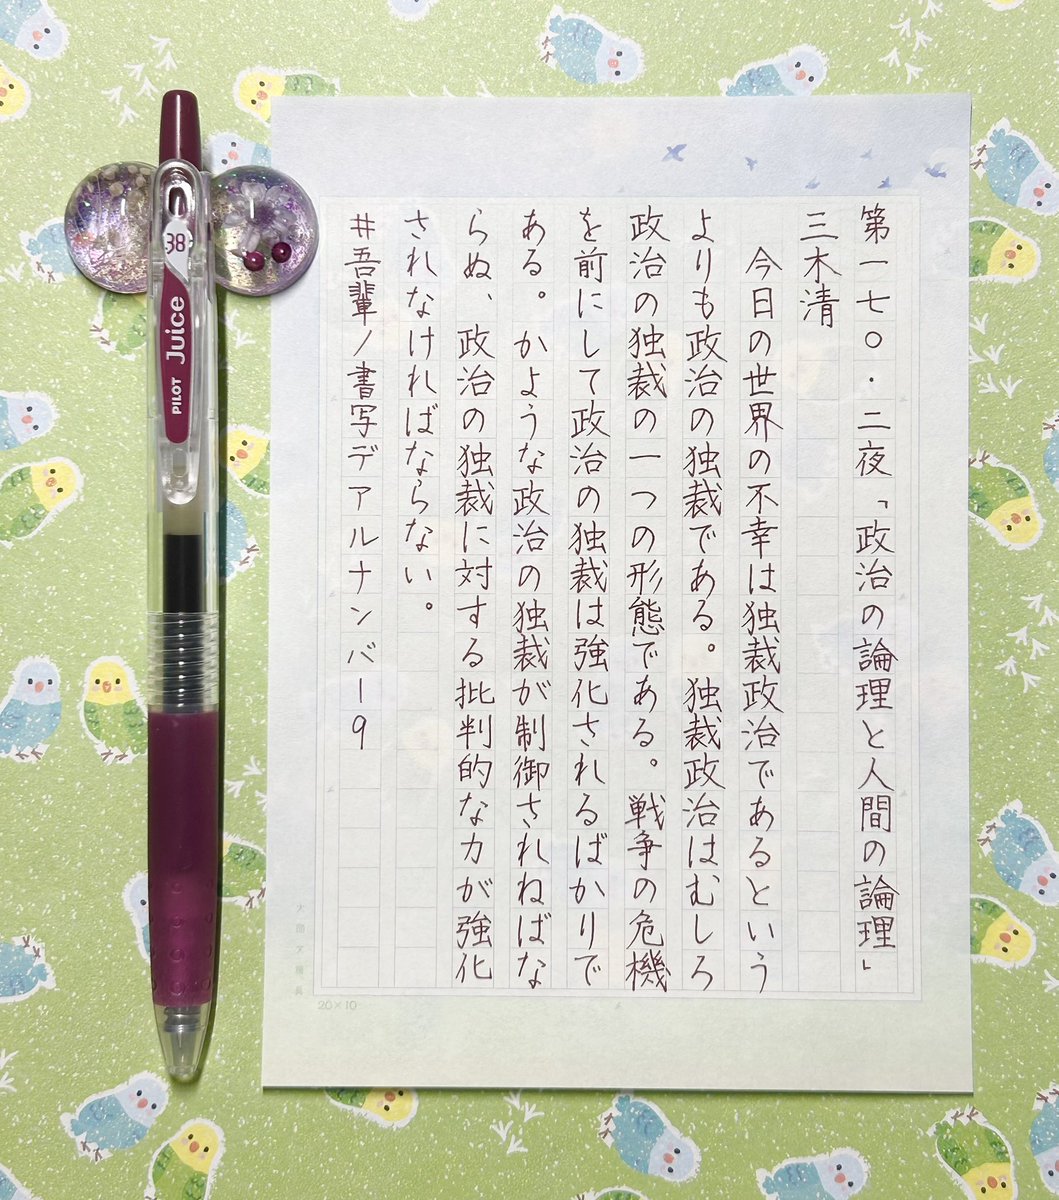 第一七〇・二夜「政治の論理と人間の論理」
三木清
今日の世界の不幸は独裁政治であるという
よりも政治の独裁である。独裁政治はむしろ
政治の独裁の一つの形態である。戦争の危機
を前にして政治の独裁は強化されるばかりで
ある。かような政治の独裁が制御されねばな
らぬ、政治の独裁に対する批判的な力が強化
されなければならない。
#吾輩ノ書写デアルナンバー9
20×10
38
Juice
PILOT